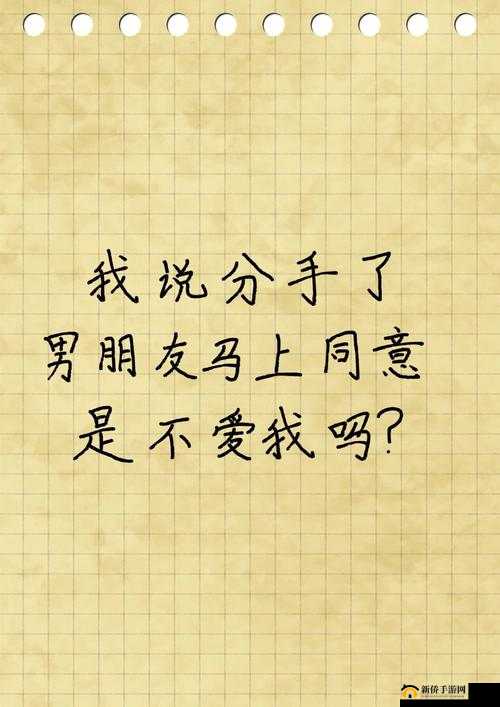 我说分手了
男朋友马上同意
是不爱我吗?
新侨手游网